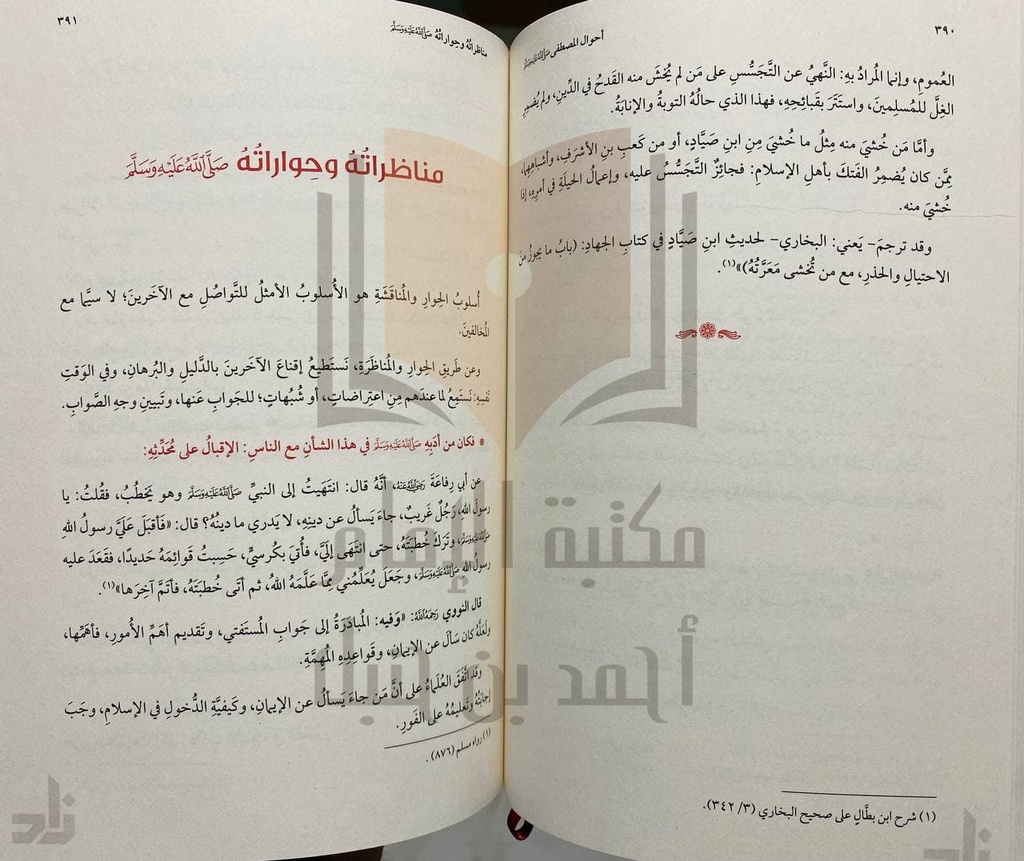 ٣٩٠
أحوال المصطفى ﷺ
العُمومِ، وإنما المُرادُ بهِ: النَّهيُ عن التَّجَسُّسِ على مَن لم يُخْشَ منه القَدحُ في الدِّينِ، ولم يُضمِرِ
الغِلَّ للمُسلِمينَ، واستَتَرَ بقَبائِحِهِ، فهذا الذي حالُهُ التوبةُ والإنابةُ.
وأمَّا مَن خُشيَ منه مِثلُ ما خُشيَ مِنِ ابنِ صَيَّادٍ، أو من كَعبِ بنِ الأشرَفِ، وأشباهِهِما،
مِمَّن كان يُضمِرُ الفَتكَ بأهلِ الإسلامِ: فجائزٌ التَّجَسُّسُ عليه، وإعمالُ الحيلَةِ في أمرِهِ، إذا
خُشيَ منه.
وقد ترجمَ- يَعني: البخاري- لحديثِ ابنِ صَيَّادٍ في كتابِ الجهادِ: (بابُ ما يجوزُ منَ
الاحتيالِ والحذرِ، مع من تُخشى مَعَرَّتُهُ)»(١).
(١) شرح ابن بطَّالٍ على صحيح البخاري (٣/ ٣٤٢).
مناظراتُهُ وحواراتُهُ ﷺ
٣٩١
مناظراتُهُ وحِواراتُهُ ﷺ
أُسلوبُ الحِوارِ والمُناقَشَةِ هو الأُسلوبُ الأمثلُ للتَّواصُلِ مع الآخَرينَ؛ لا سيَّما مع
المُخالفينَ.
وعن طَريقِ الحِوارِ والمُناظَرَةِ، نَستَطيعُ إقناعَ الآخَرينَ بالدَّليلِ والبُرهانِ، وفي الوَقتِ
نفسِهِ: نَستَمِعُ لما عندَهم مِنِ اعتِراضاتٍ، أو شُبُهاتٍ؛ للجَوابِ عَنها، وتَبيينِ وجهِ الصَّوابِ.
* فكان من أدَبِهِ ﷺ في هذا الشأنِ مع الناسِ: الإقبالُ على مُحَدِّثِهِ:
عن أبي رِفاعَةَ رَضِيَ اللَّهُ عَنْهُ، أنَّهُ قال: انتَهَيتُ إلى النبيِّ ﷺ وهو يَخطُبُ، فقُلتُ: يا
رسولَ اللهِ، رَجُلٌ غَريبٌ، جاءَ يَسألُ عن دينِهِ، لا يَدري ما دينُهُ؟ قال: «فأقبَلَ عَلَيَّ رسولُ اللهِ
ﷺ، وتَرَكَ خُطبَتَهُ، حتى انتَهَى إلَيَّ، فأُتيَ بكُرسيٍّ، حَسِبتُ قَوائِمَهُ حَديدًا، فقَعَدَ عليه
رسولُ الله ﷺ، وجَعَلَ يُعَلِّمُني مِمَّا عَلَّمَهُ اللهُ، ثم أتى خُطبَتَهُ، فأتَمَّ آخِرَها»(١).
قال النووي رَحِمَهُ اللَّهُ: «وَفيه: المُبادَرَةُ إلى جَوابِ المُستَفتي، وتَقديم أهَمِّ الأُمورِ، فأهَمِّها،
ولَعَلَّهُ كان سَألَ عن الإيمانِ، وقَواعِدِهِ المُهِمَّةِ.
وقد اتَّفَقَ العُلَماءُ على أنَّ مَن جاءَ يَسألُ عن الإيمانِ، وكَيفيَّةِ الدُّخولِ في الإسلامِ، وجَبَ
إجابَتُهُ وتَعليمُهُ على الفَورِ.
(١) رواه مسلم (٨٧٦).
مكتبة الإمام
أحمد بن حنبل
زاد